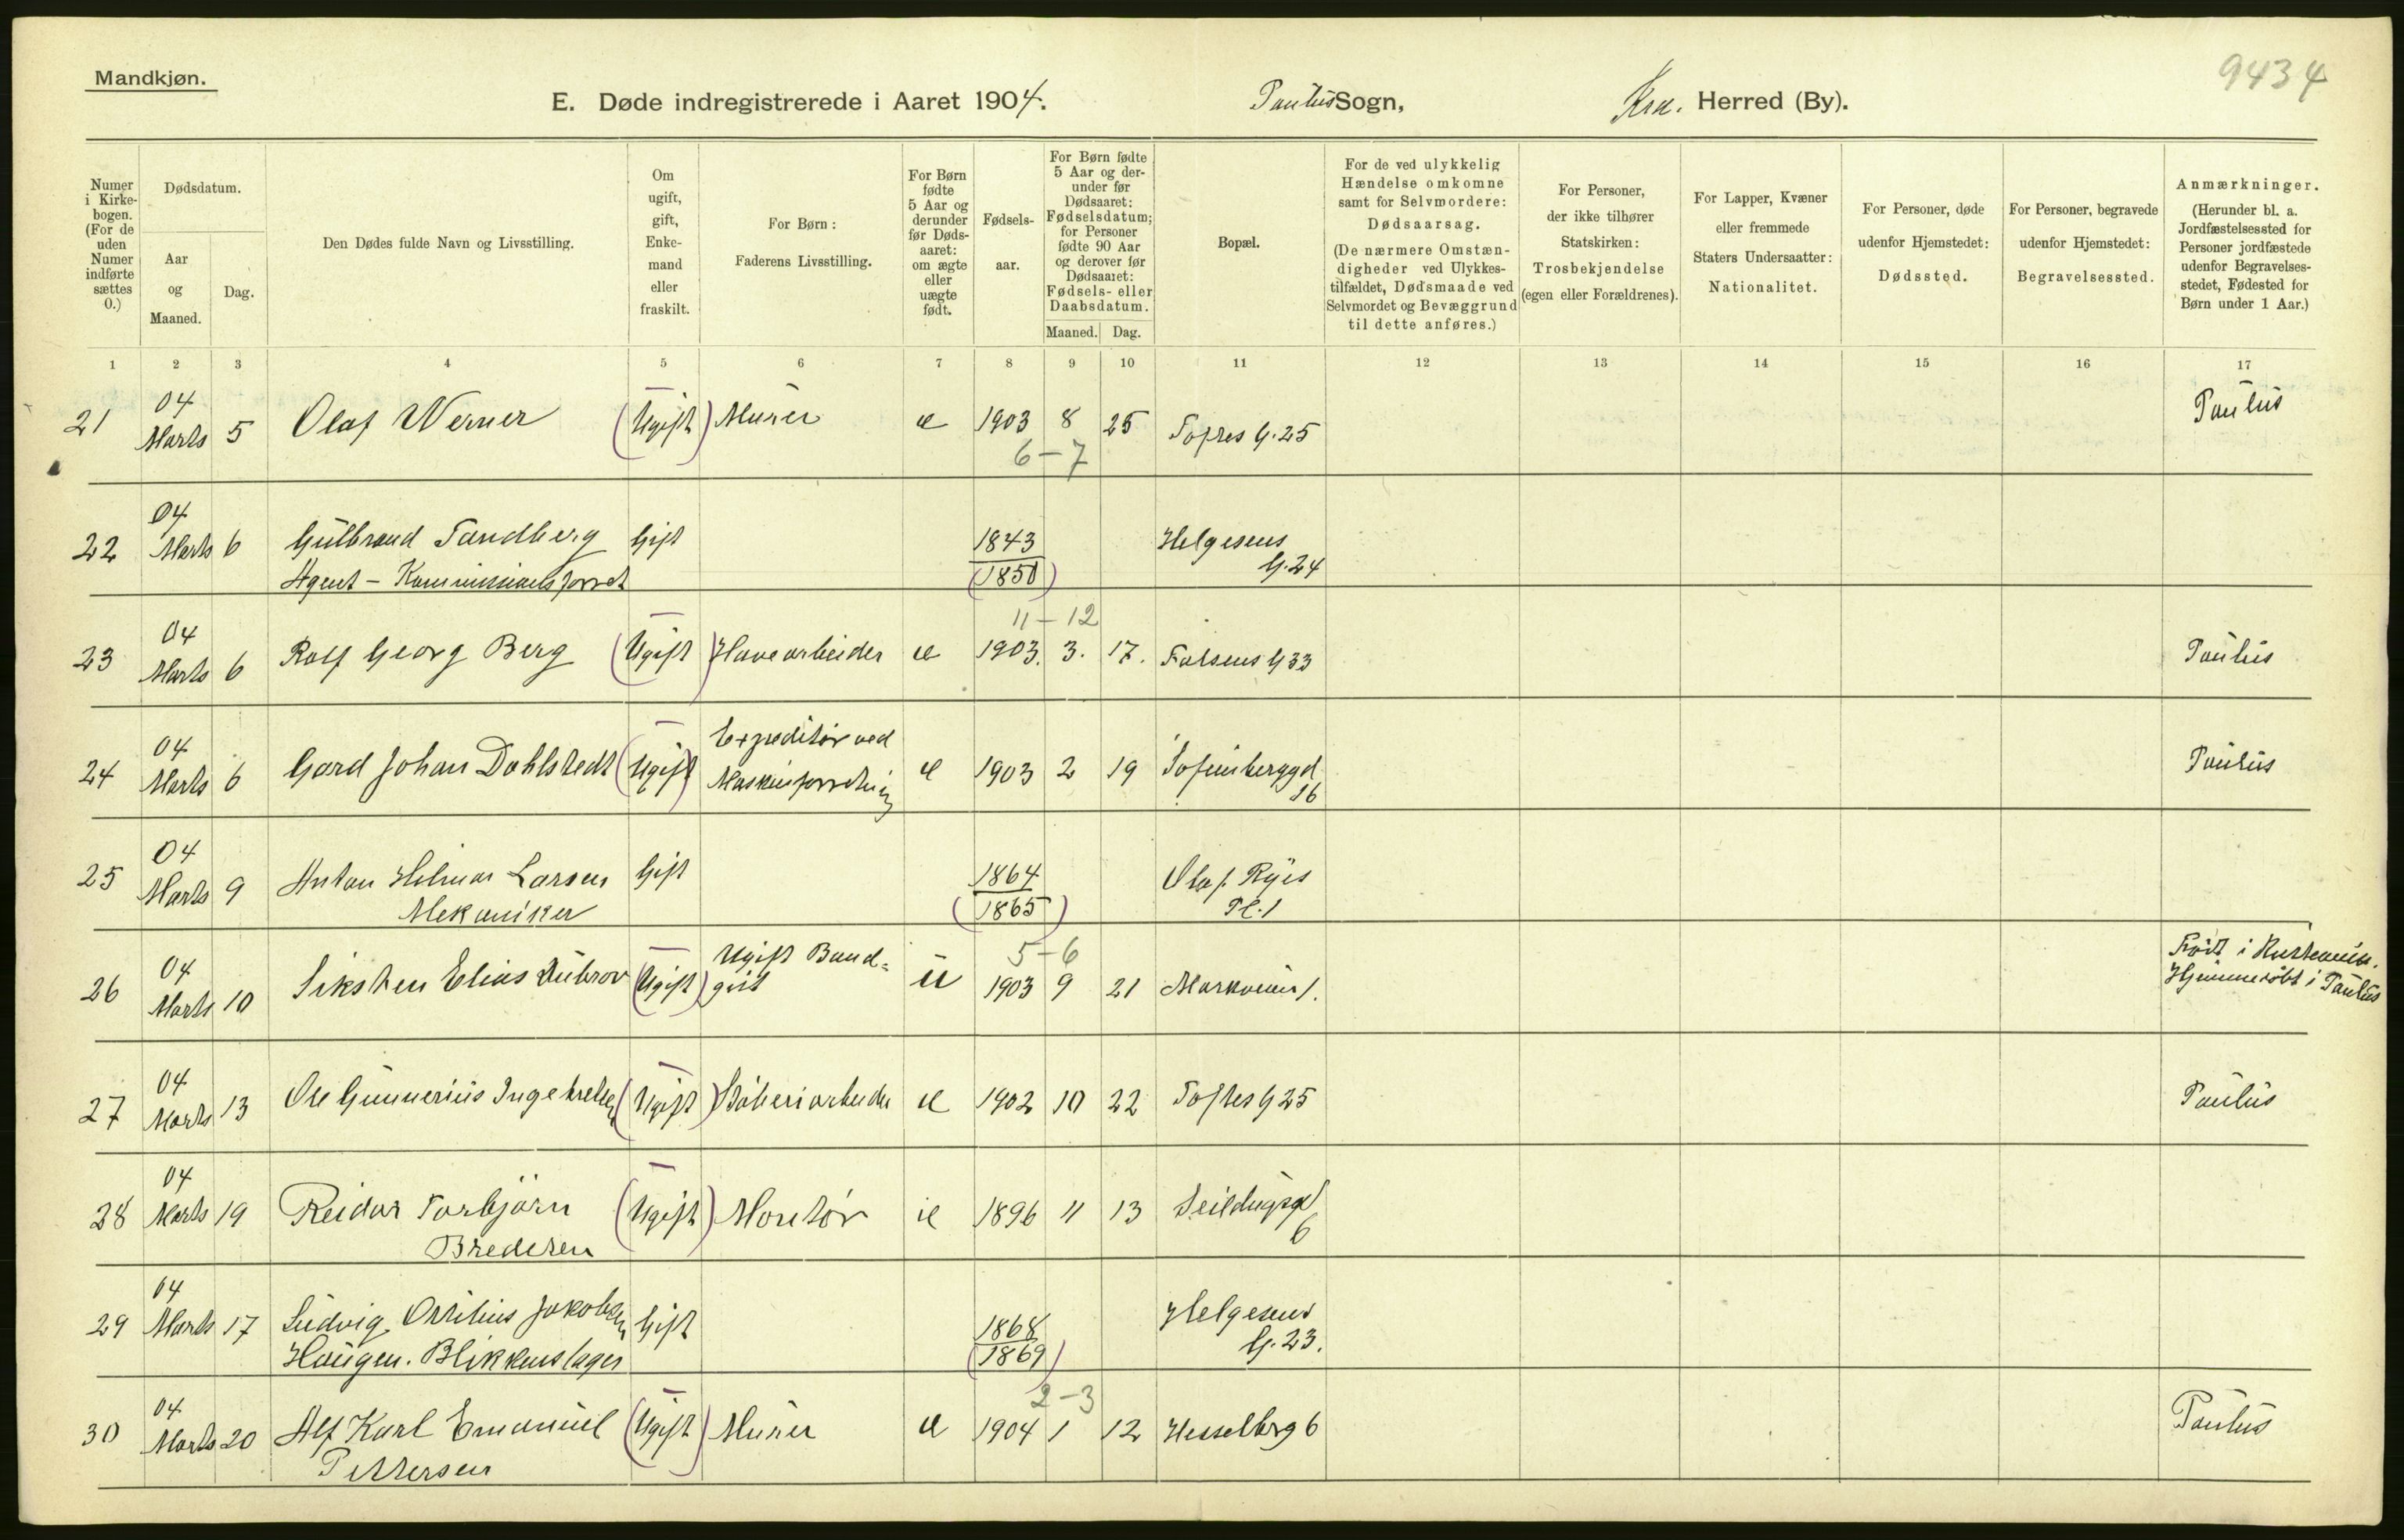 Mandkjøn.
9434
E. Døde indregistrerede i Aaret 1904. Paulus Sogn, Kra. Herred (By).
Numer i Kirke-bogen. (For de uden Numer indførte sættes 0.)
Dødsdatum.
Aar og Maaned.
Dag.
Den Dødes fulde Navn og Livsstilling.
Om ugift, gift, Enke-mand eller fraskilt.
For Børn: Faderens Livsstilling.
For Børn fødte 5 Aar og derunder før Døds-aaret: om ægte eller uægte født.
Fødsels-aar.
For Børn fødte 5 Aar og der-under før Dødsaaret: Fødselsdatum; for Personer fødte 90 Aar og derover før Dødsaaret: Fødsels- eller Daabsdatum.
Maaned. Dag.
Bopæl.
For de ved ulykkelig Hændelse omkomne samt for Selvmordere: Dødsaarsag. (De nærmere Omstæn-digheder ved Ulykkes-tilfældet, Dødsmaade ved Selvmordet og Bevæggrund til dette anføres.)
For Personer, der ikke tilhører Statskirken: Trosbekjendelse (egen eller Forældrenes).
For Lapper, Kvæner eller fremmede Staters Undersaatter: Nationalitet.
For Personer, døde udenfor Hjemstedet: Dødssted.
For Personer, begravede udenfor Hjemstedet: Begravelsessted.
Anmærkninger. (Herunder bl. a. Jordfæstelsessted for Personer jordfæstede udenfor Begravelses-stedet, Fødested for Børn under 1 Aar.)
1 2 3 4 5 6 7 8 9 10 11 12 13 14 15 16 17
21 04 Marts 5 Olaf Werner (Ugift) Murer æ 1903 8 25 Toftes G. 25 Paulus
6-7
22 04 Marts 6 Gulbrand Sandberg Gift 1843 Helgesens
Agent- Kommissionsforret (1850) G. 24
11-12
23 04 Marts 6 Rolf Georg Berg (Ugift) Havearbeider æ 1903. 3. 17. Falsens G 33 Paulus
24 04 Marts 6 Gard Johan Dahlstedt (Ugift) Expeditør ved æ 1903 2 19 Sofienberggd Paulus
Maskinforretning 16
25 04 Marts 9 Anton Hilmar Larsen Gift 1864 Olaf Ryes
Mekaniker (1865) Pl. 1
5-6
26 04 Marts 10 Siksten Elias (Ugift) Ugift Band- u 1903 9 21 Markveien 1. Født i
gist Hjemmedøbt i Paulus
27 04 Marts 13 Ole Gunnerius Ingebretsen (Ugift) Støberiarbeider æ 1902 10 22 Toftes G 25 Paulus
28 04 Marts 19 Reidar Torbjørn (Ugift) Montør æ 1896 11 13 Seildugsgd
Bredesen 6
29 04 Marts 17 Ludvig Jakobsen Gift 1868 Helgesens
Haugen. Blikkenslager (1869) G. 23.
2-3
30 04 Marts 20 Alf Karl Emanuel (Ugift) Murer æ 1904 1 12 Hesselberg 6 Paulus
Pettersen